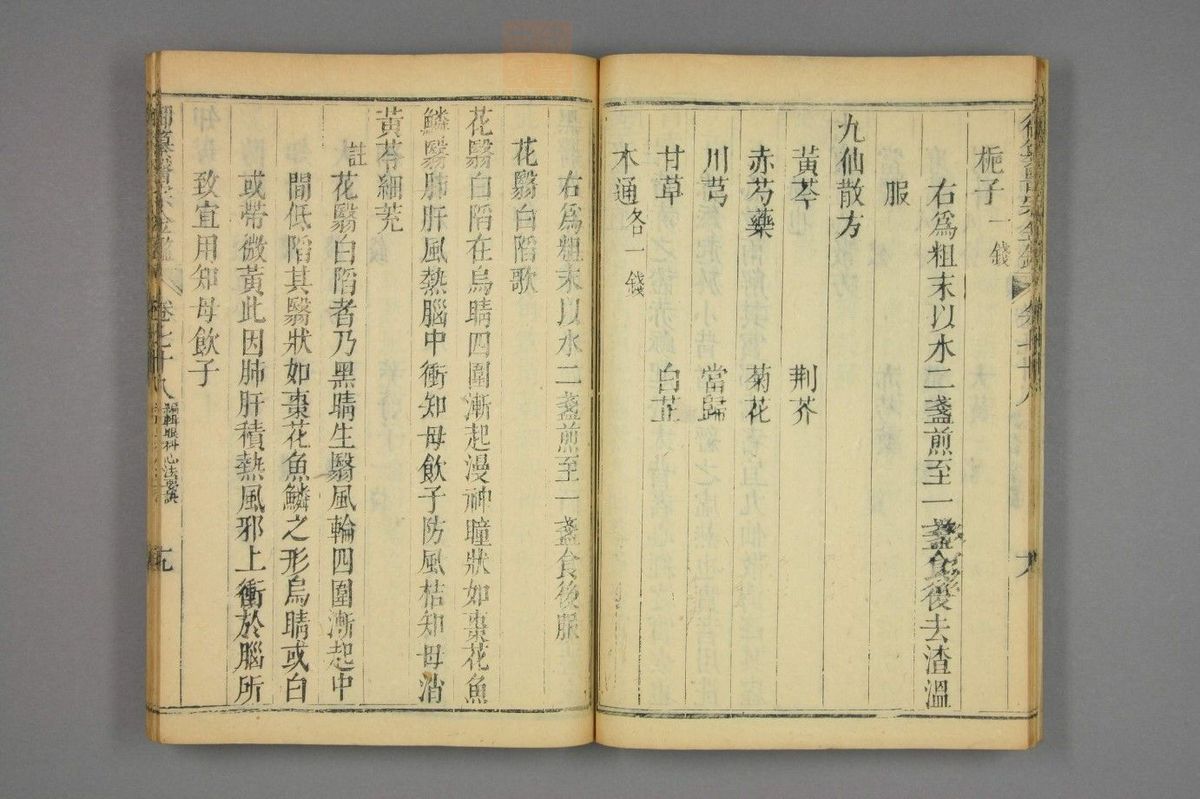 梔子一錢
右爲粗末以水二盞煎至一盞食後去渣溫
服
九仙散方
黃芩 荆芥
赤芍藥 菊花
川芎 當歸
甘草 白芷
木通各一錢
右爲粗末以水二盞煎至一盞食後服
花翳白陷歌
花翳白陷在烏睛四圍漸起漫神瞳狀如棗花魚
鱗翳肺肝風熱腦中衝知母飲子防風桔知母消
黃芩細茺
註花翳白陷者乃黑睛生翳風輪四圍漸起中
間低陷其翳狀如棗花魚鱗之形烏睛或白
或帶微黃此因肺肝積熱風邪上衝於腦所
致宜用知母飲子
卷七十八
編輯眼科心法要訣